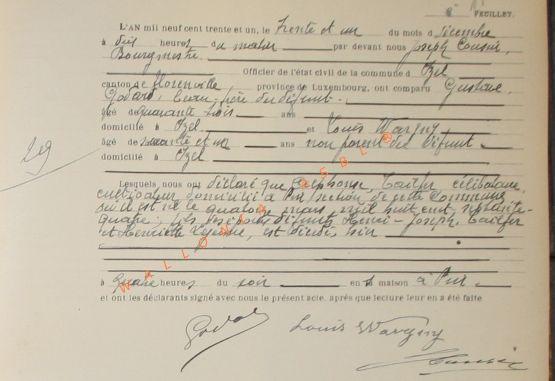 FEUILLET.
L'AN mil neuf cent trente et un, le Trente et un du mois d Décembre
à dix heures du matin par devant nous Joseph
Bourgmestre
Officier de l'état civil de la commune d Izel
canton de Florenville province de Luxembourg, ont comparu Gustave
Godard, beau-frère du défunt.
âgé de quarante trois ans
domicilié à Izel et Louis Wargny
âgé de soixante et un ans non parent du défunt.
domicilié à Izel
29
Lesquels nous ont déclaré que Alphonse, célibataire
cultivateur domicilié à Pin, section de cette commune
où il est né le quatorze mars mil huit cent septante-
quatre, fils des époux défunts Henri-Joseph
et Henriette est décédé hier
à quatre heures du soir en sa maison à Pin
et ont les déclarants signé avec nous le présent acte, après que lecture leur en a été faite
WALLONIA ASBL ©
Godard Louis Wargny